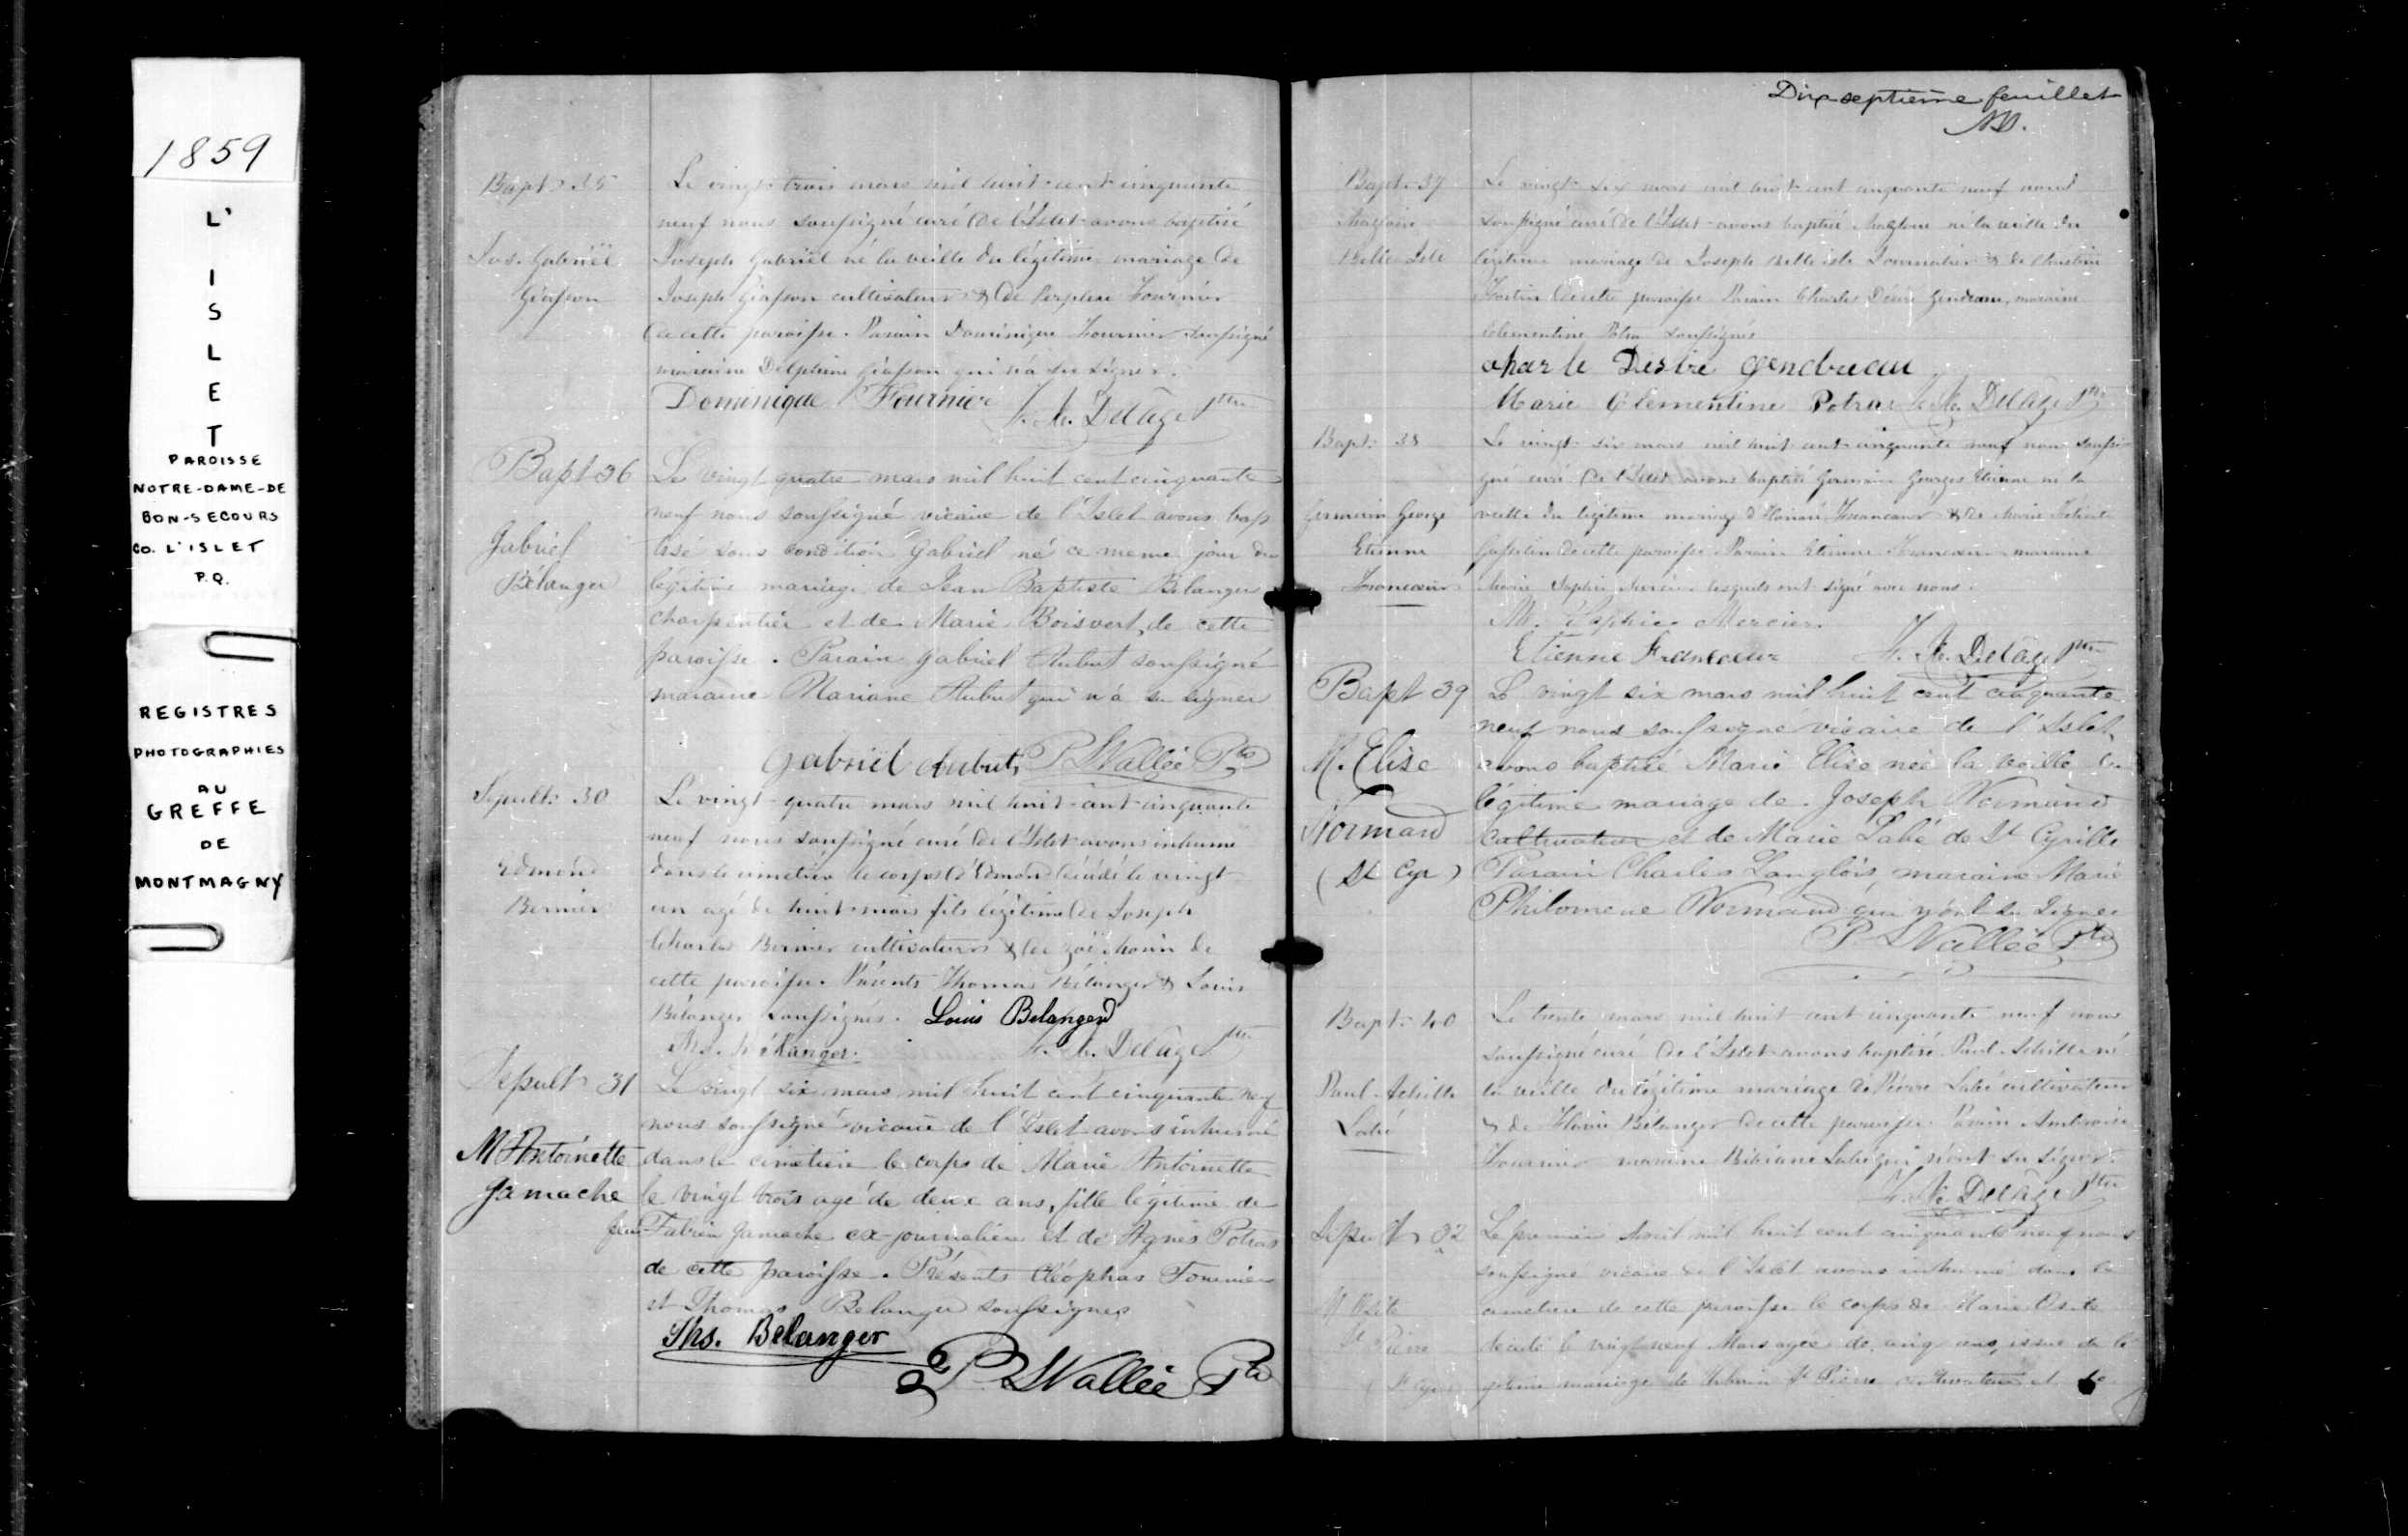 1859
L'
I
S
L
E
T
PAROISSE
NOTRE-DAME-DE
BON-SECOURS
CO. L'ISLET
P.Q.
REGISTRES
PHOTOGRAPHIES
AU
GREFFE
DE
MONTMAGNY
Bapt. 35
Jos. Gabriël
Giasson
Le vingt trois mars mil huit cent cinquante
neuf nous soussigné curé de l'Islet avons baptisé
Joseph Gabriël né la veille du légitime mariage de
Joseph Giasson cultivateur & de Fournier
de cette paroisse. Parain Dominique Fournier soussigné
maraine Delphine Giasson qui n'a su signer.
Dominique Fournier F. X. Delâge Ptre
Bapt 36
Gabriel
Bélanger
Le vingt quatre mars mil huit cent cinquante
neuf nous soussigné vicaire de l'Islet avons bap
tisé sous condition Gabriel né ce meme jour du
légitime mariage de Jean Baptiste Bélanger
charpentier et de Marie Boisvert, de cette
paroisse. Parain Gabriel Aubut soussigné
maraine Mariane Aubut qui n'a su signer
Gabriël Aubut, P. S Vallée Ptre
Sépult. 30
Edmond
Bernier
Le vingt-quatre mars mil huit-cent-cinquante
neuf nous soussigné curé de l'Islet avons inhumé
dans le cimetière le corps d'Edmond décédé le vingt
un agé de huit mois fils légitime de Joseph
Charles Bernier cultivateur & de Zoé Morin de
cette paroisse. Présents Thomas Bélanger & Louis
Bélanger soussignés. Louis Belanger
Ths. Bélanger. F. X. Delâge Ptre
Sepult 31
M Antoinette
Gamache
Le vingt six mars mil huit cent cinquante neuf
nous soussigné vicaire de l'Islet avons inhumé
dans le cimetière le corps de Marie Antoinette
le vingt trois agé de deux ans, fille legitime de
feu Fabien Gamache ex-journalier et de Agnès Potras
de cette paroisse. Présents Cléophas Fournier
et Thomas Belanger soussignés
Ths. Belanger
P S Vallée Ptre
Dix septième feuillet
Bapt. 37
Magloire
Belle Isle
Le vingt six mars mil huit cent cinquante neuf nous
soussigné curé de l'Islet avons baptisé Magloire né la veille du
légitime mariage de Joseph Belle isle Journalier & de Christine
Fortin de cette paroisse Parain Charles Désiré Gendreau, maraine
Clementine Potra soussignés
charle Desire gendreau
Marie Clementine Potras F. X. Delâge Ptre
Bapt. 38
Germain George
Etienne
Francoeur
Le vingt-six mars mil huit cent cinquante neuf nous soussi
gné curé de l'Islet avons baptisé Germain Georges Etienne né la
veille du légitime mariage d'Honoré Francoeur & de Marie
Gosselin de cette paroisse Parain Etienne Francoeur maraine
Marie Sophie Mercier lesquels ont signé avec nous.
M. Sophie Mercier.
Etienne Francoeur F. X. Delâge Ptre
Bapt 39
M. Elise
Normand
(St Cyr)
Le vingt six mars mil huit cent cinquante
neuf nous soussigné vicaire de l'Islet,
avons baptisé Marie Elise née la veille du
légitime mariage de Joseph Normand
cultivateur et de Marie Labé de St Cyrille
Parain Charles Langlois, maraine Marie
Philomene Normand qui n'ont su signer
P. S Vallée Ptre
Bapt. 40
Paul-Achille
Labé
Le trente mars mil huit cent cinquante neuf nous
soussigné curé de l'Islet avons baptisé Paul Achille né
la veille du légitime mariage de Pierre Labé cultivateur
& de Flavie Bélanger de cette paroisse. Parain Ambroise
Fournier maraine Bibiane Labé qui n'ont su signer.
F. X. Delâge Ptre
Sépult 32
M Osite
St Pierre
St Cyr
Le premier Avril mil huit cent cinquante neuf nous
soussigné vicaire de l'Islet avons inhumé dans le
cimetiere de cette paroisse le corps de Marie Osite
decedé le vingt neuf Mars agée de cinq ans, issue du lé
gitime mariage de St Pierre cultivateur et de